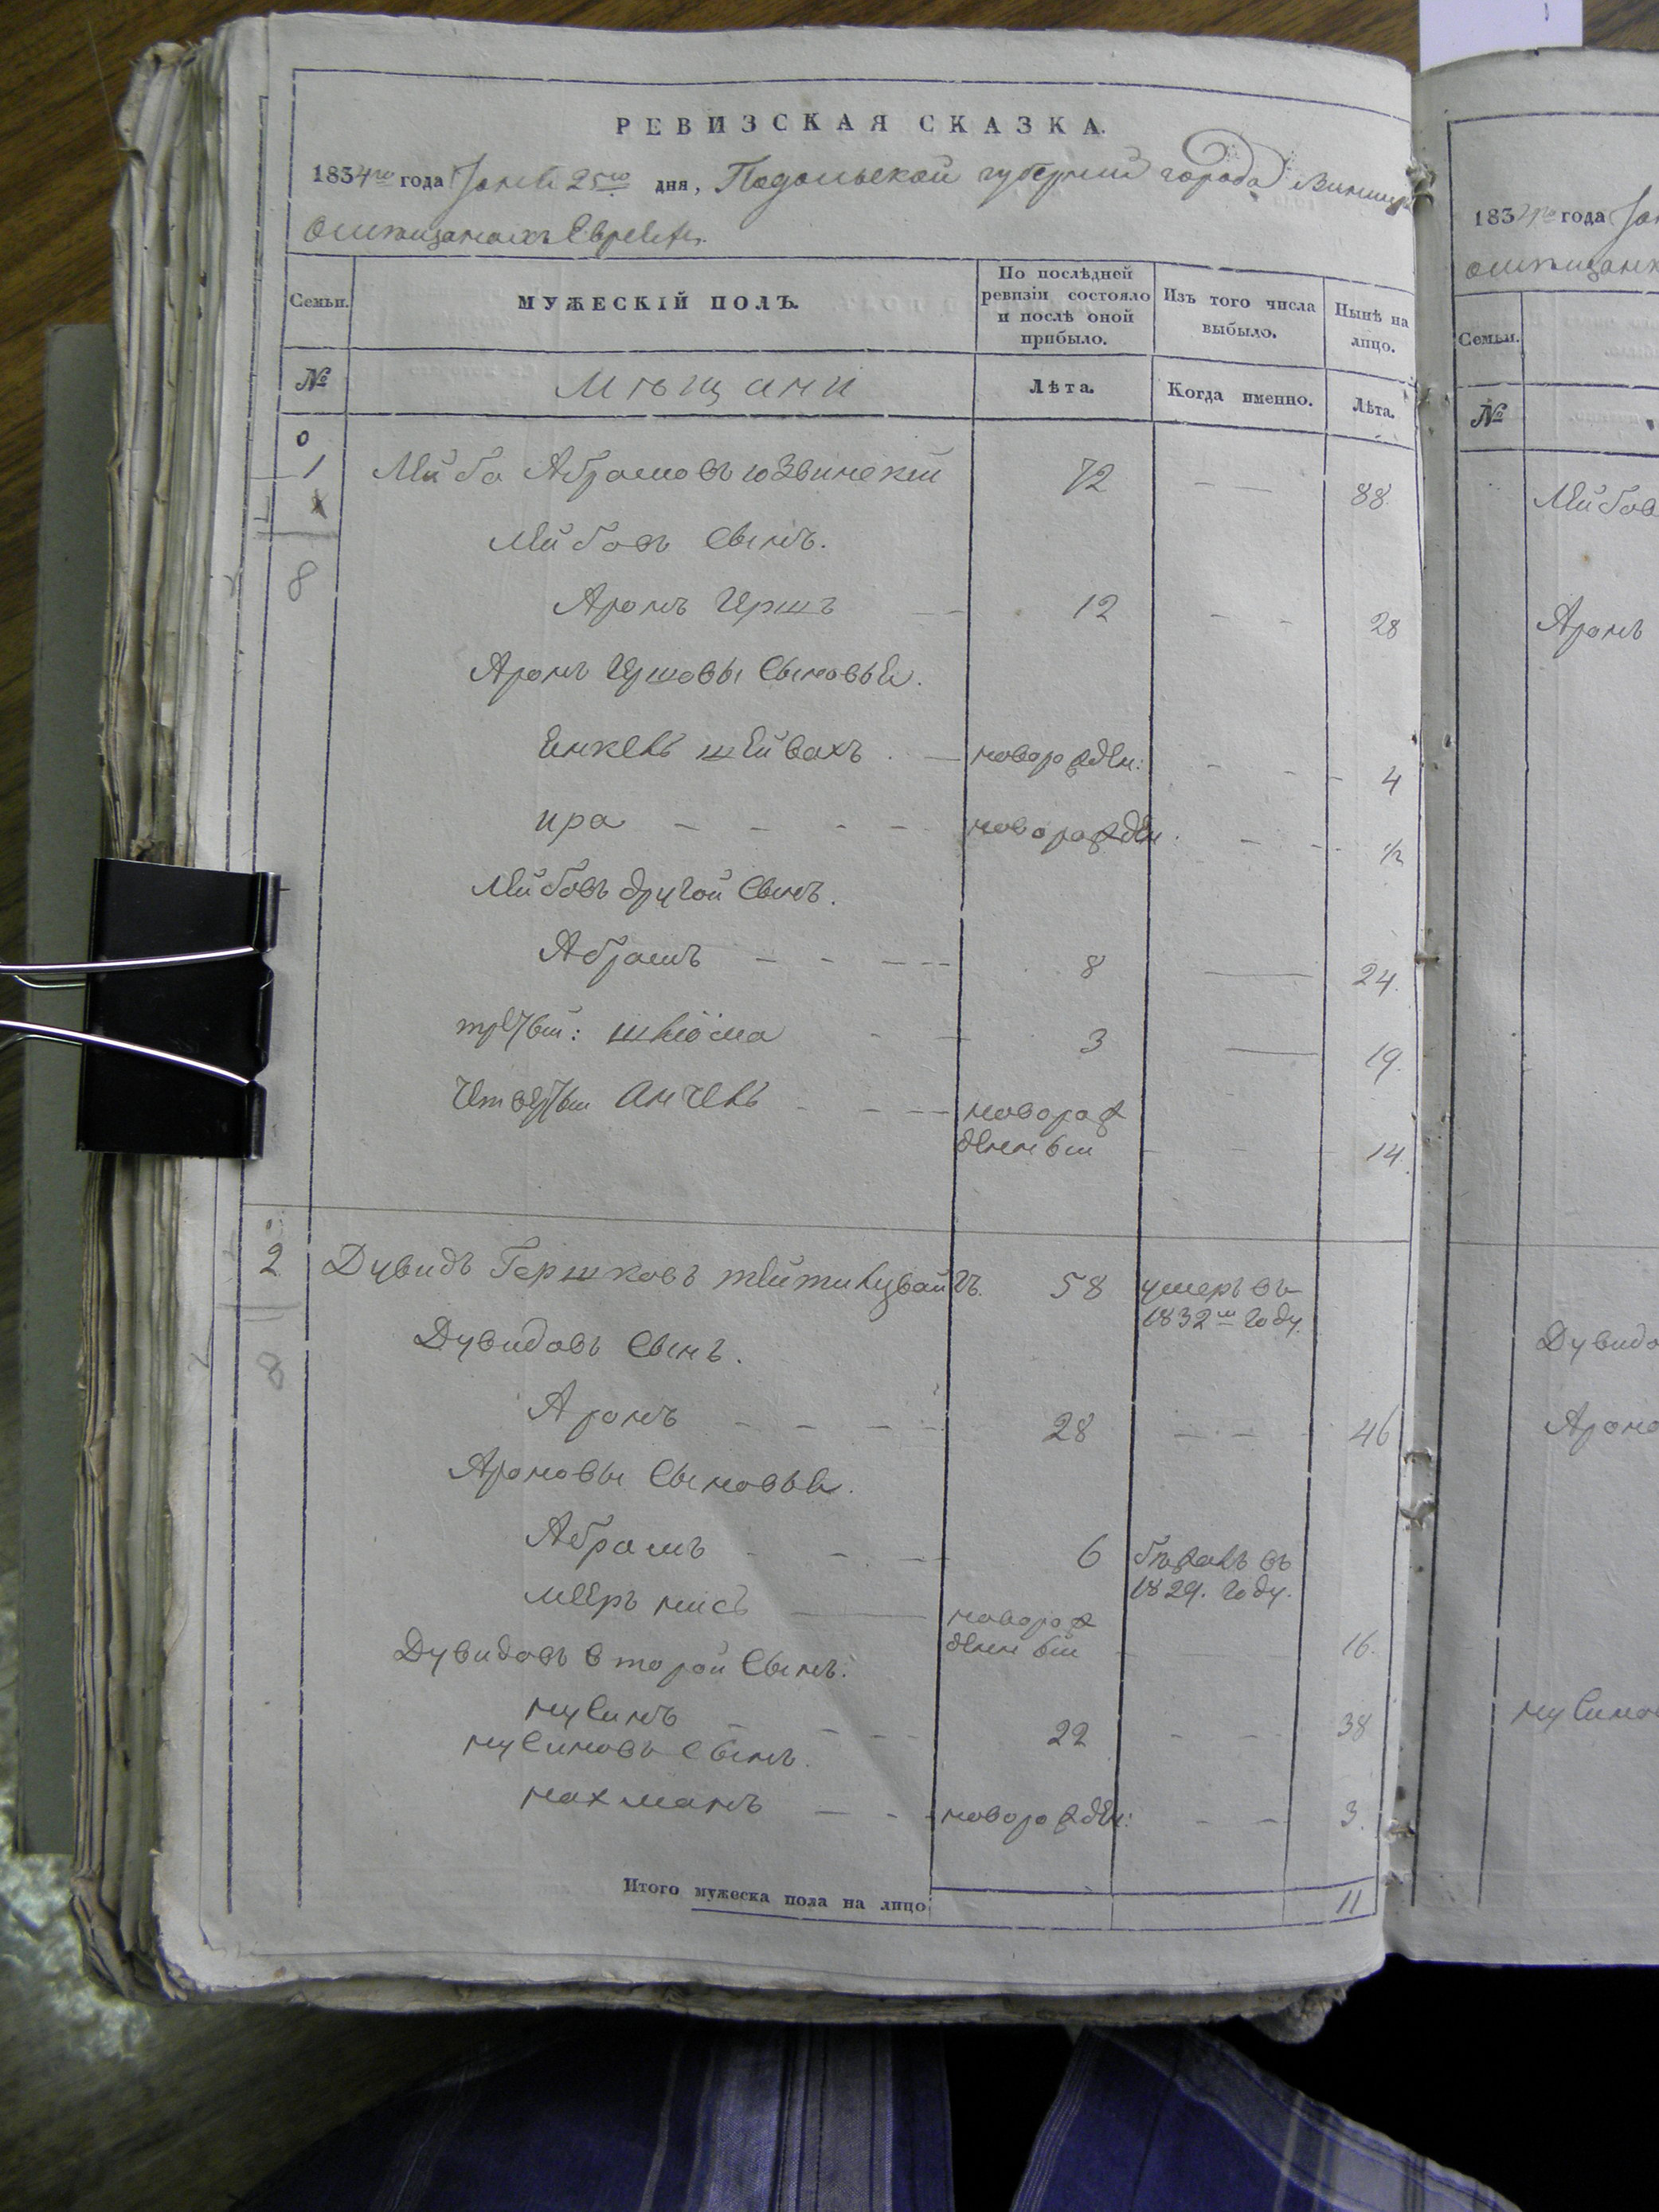 РЕВИЗСКАЯ СКАЗКА.
1834го года 25го дня, Подольской губернии города Виницы
о мещанахъ Евреяхъ.
Семьи.
МУЖЕСКІЙ ПОЛЪ.
По послѣдней ревизіи состояло и послѣ оной прибыло.
Изъ того числа выбыло.
Нынѣ на лицо.
№
Мѣщани
Лѣта.
Когда именно.
Лѣта.
1 Лейба Абрамовъ Юзвинскій 72 88.
Лейбовъ Сынъ.
8
Аронъ Иршъ 12 28
Аронъ Иршовы Сыновья.
Янкель Шейвахъ новорожден: 4
ира новорожден. 1/2
Лейбовъ другой Сынъ.
Абрамъ 8 24.
третьий: Шлёма 3 19.
Четвертый Анчель новорожденный 14.
2 Дувидъ Гершковъ 58 умеръ въ 1832м году.
Дувидовъ Сынъ.
8
Аронъ 28 46
Ароновы Сыновья.
Абрамъ 6 бѣжалъ въ 1829. году.
Мееръ новорожденный 16.
Дувидовъ второй Сынъ.
нусинъ 22 38
нусиновъ Сынъ.
нахманъ новорожден: 3.
Итого мужеска пола на лицо 11
183 года
Семьи.
№
Лейбов
Аронъ
Дувидо
Ароно
нусинов